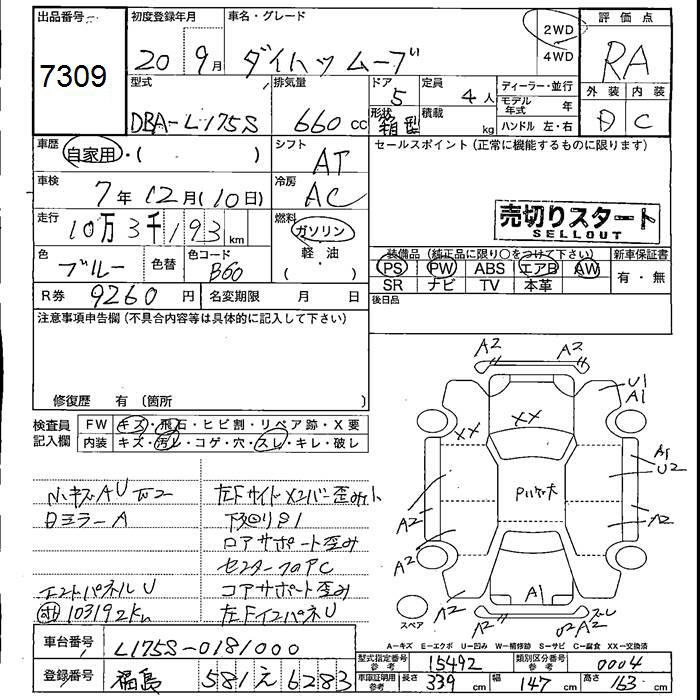 出品番号
7309
初度登録年月
20 9月
車名・グレード
ダイハツ ムーブ
2WD
4WD
評価点
RA
外装 内装
D C
型式
DBA-L175S
排気量
660 cc
ドア
5
形状
箱型
定員
4人
積載
kg
ディーラー・並行
モデル年式 年
ハンドル 左・右
車歴
自家用・( )
シフト
AT
セールスポイント(正常に機能するものに限ります)
車検
7年12月(10日)
冷房
AC
走行
10万3千193km
燃料
ガソリン
軽・油
( )
売切りスタート
SELLOUT
色
ブルー
色替
色コード
B60
装備品(純正品に限り○をつけて下さい)
新車保証書
PS PW ABS エアB AW
SR ナビ TV 本革
有・無
R券 9260円
名変期限 月 日
後日品
注意事項申告欄(不具合内容等は具体的に記入して下さい)
修復歴 有(箇所 )
検査員記入欄
FW キズ・飛石・ヒビ割・リペア跡・X要
内装 キズ・汚レ・コゲ・穴・スレ・キレ・破レ
小キズAU
左Fサイドメンバー歪み
ミラーA
下回りS1
コアサポート歪み
エンドパネルU
コアサポート歪み
103192km
左FインパネU
A2 A2
U1
A1
XX XX
A1
U2
A2 A2
A2
A1
A2 A2
スレ
U2 A2
スペア
A-キズ E-エクボ U-凹み W-補修跡 S-サビ C-腐食 XX-交換済
車台番号 L175S-0181000
型式指定番号 参考 15492
類別区分番号 参考 0004
登録番号 福島 581 え 6283
車庫証明用 参考 長さ 339cm 幅 147cm 高さ 163cm